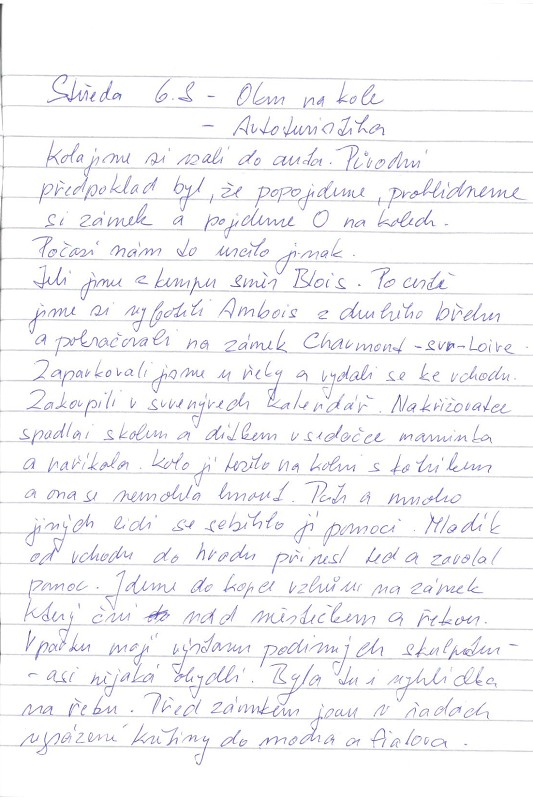 Středa 6.8 - Okem na kole
- Autoturistika
Kola jsme si vzali do auta. Původní
předpoklad byl, že popojedeme, prohlídneme
si zámek a pojedeme O na kolech.
Počasí nám to určilo jinak.
Jeli jsme z kempu směr Blois. Po cestě
jsme si vyfotili Ambois z druhého břehu
a pokračovali na zámek Chaumont-sur-Loire.
Zaparkovali jsme u řeky a vydali se ke vchodu.
Zakoupili v suvenýrech kalendář. Na křižovatce
spadla s kolem a dítkem v sedačce maminka
a naříkala. Kolo jí leželo na koleni s kotníkem
a ona se nemohla hnout. Petr a mnoho
jiných lidí se seběhlo jí pomoci. Mladík
od vchodu do hradu přinesl led a zavolal
pomoc. Jdeme do kopce vzhůru na zámek
který ční nad městečkem a řekou.
V parku mají výstavu podivných skulptur -
- asi nějaká obydlí. Byla tu i vyhlídka
na řeku. Před zámkem jsou v řadách
vysázené květiny do modra a fialova.